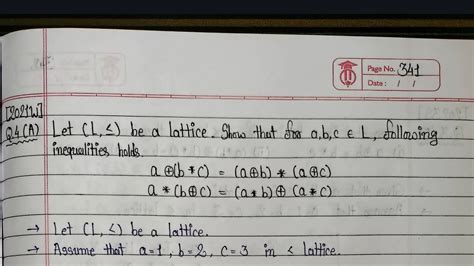 Page No. 341
Date: / /
[2021W]
Q.4.(A) Let (L, ≤) be a lattice. Show that for a,b,c ∈ L, following
inequalities holds.
a ⊕ (b * c) = (a ⊕ b) * (a ⊕ c)
a * (b ⊕ c) = (a * b) ⊕ (a * c)
→ Let (L, ≤) be a lattice.
→ Assume that a=1, b=2, c=3 in ≤ lattice.